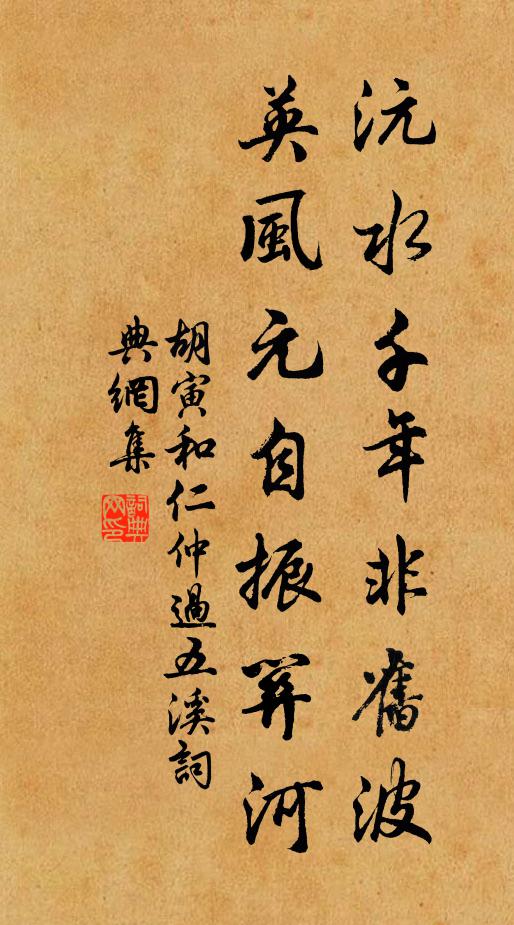 沅水千年非舊波
英風元自振關河
胡寅和仁仲過五溪詞
典網集
詞典網印